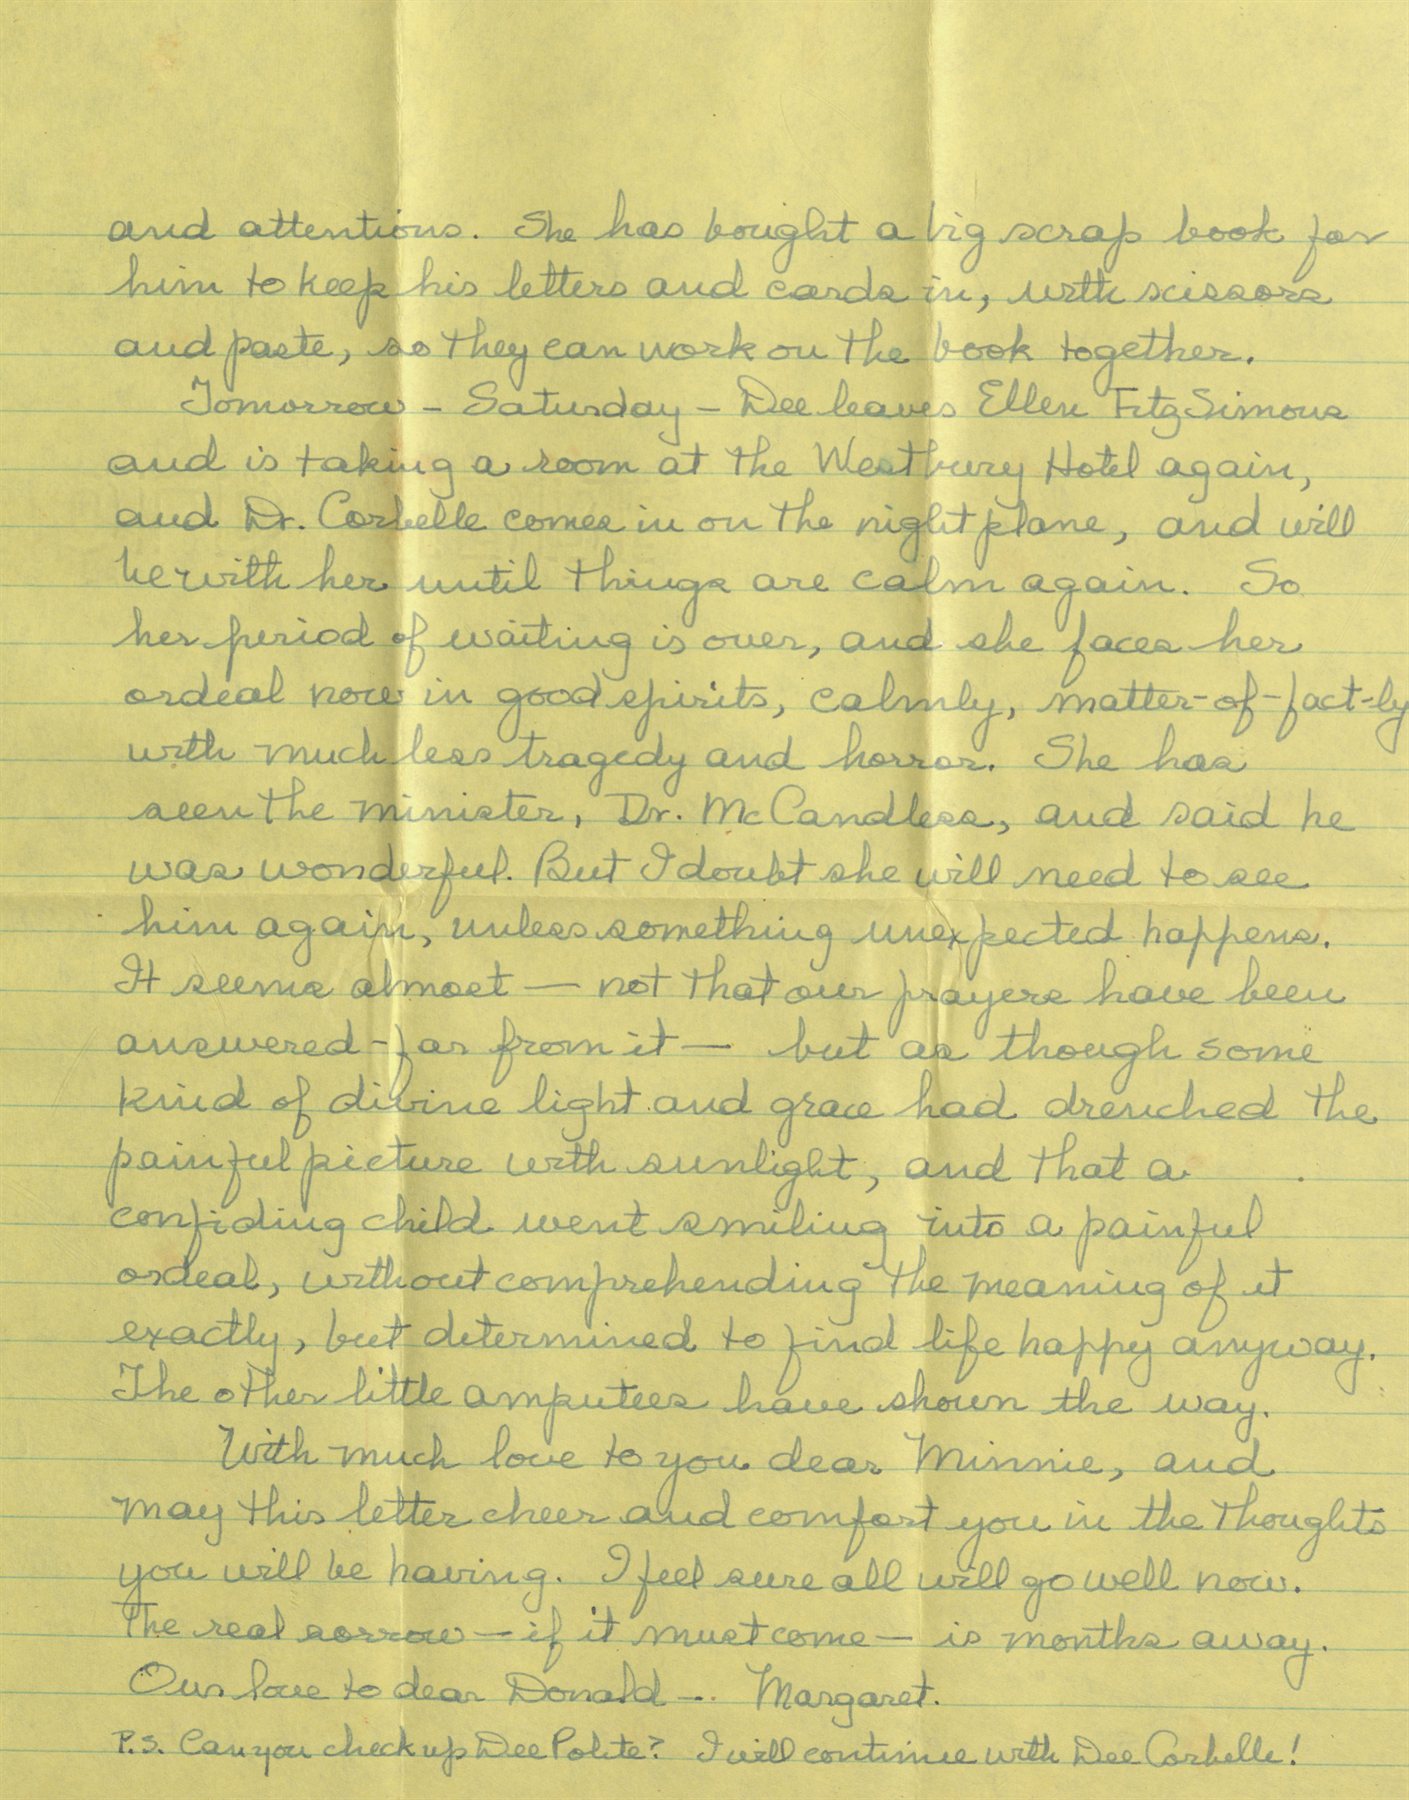 and attentions. She has bought a big scrap book for
him to keep his letters and cards in, with scissors
and paste, so they can work on the book together.
Tomorrow - Saturday - Dee leaves Ellen FitzSimons
and is taking a room at the Westbury Hotel again,
and Dr. Corbelle comes in on the night plane, and will
be with her until things are calm again. So
her period of waiting is over, and she faces her
ordeal now in good spirits, calmly, matter-of-fact-ly
with much less tragedy and horror. She has
seen the minister, Dr. McCandless, and said he
was wonderful. But I doubt she will need to see
him again, unless something unexpected happens.
It seems almost — not that our prayers have been
answered - far from it — but as though some
kind of divine light and grace had drenched the
painful picture with sunlight, and that a
confiding child went smiling into a painful
ordeal, without comprehending the meaning of it
exactly, but determined to find life happy anyway.
The other little amputees have shown the way.
With much love to you dear Minnie, and
may this letter cheer and comfort you in the thoughts
you will be having. I feel sure all will go well now.
The real sorrow — if it must come — is months away.
Our love to dear Donald -. Margaret.
P.S. Can you check up Dee Polite? I will continue with Dee Corbelle!